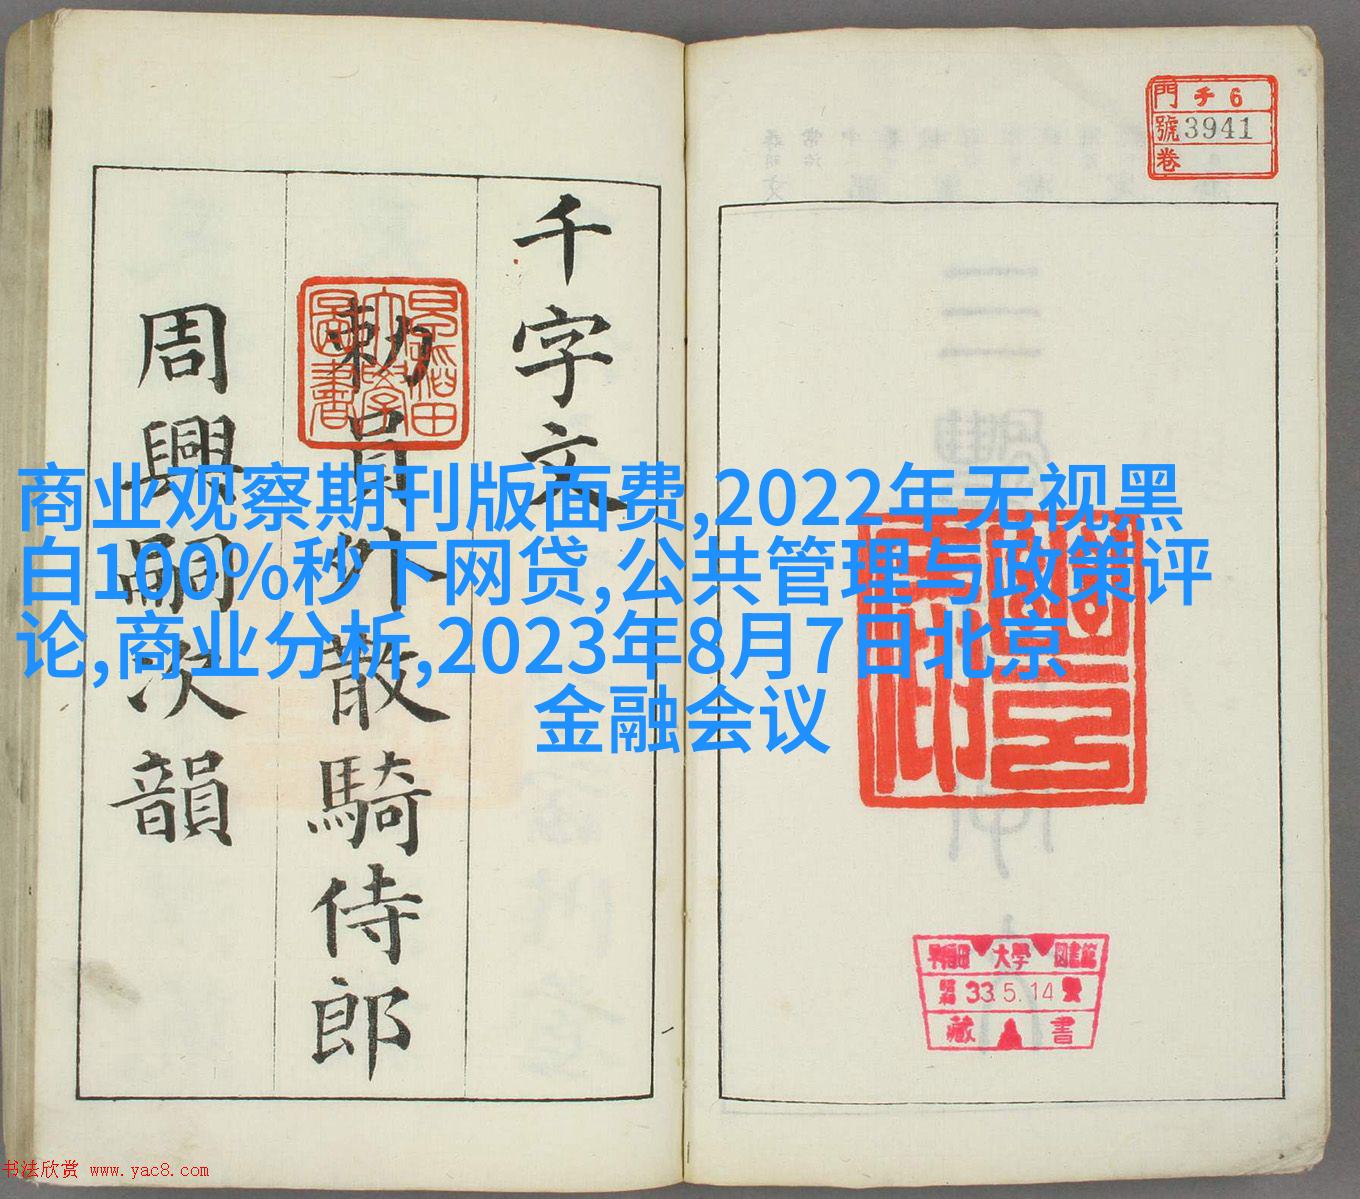 門 チ 6
號 3941
卷
千字文
勅員外散騎侍郎
周興嗣次韻
早稲田大學圖書
商业观察期刊版面费,2022年无视黑
白100%秒下网贷,公共管理与政策评
论,商业分析,2023年8月7日北京
金融会议
早稲田大學圖書館
昭和 33.5.14
藏書
书法欣赏 www.yac8.com